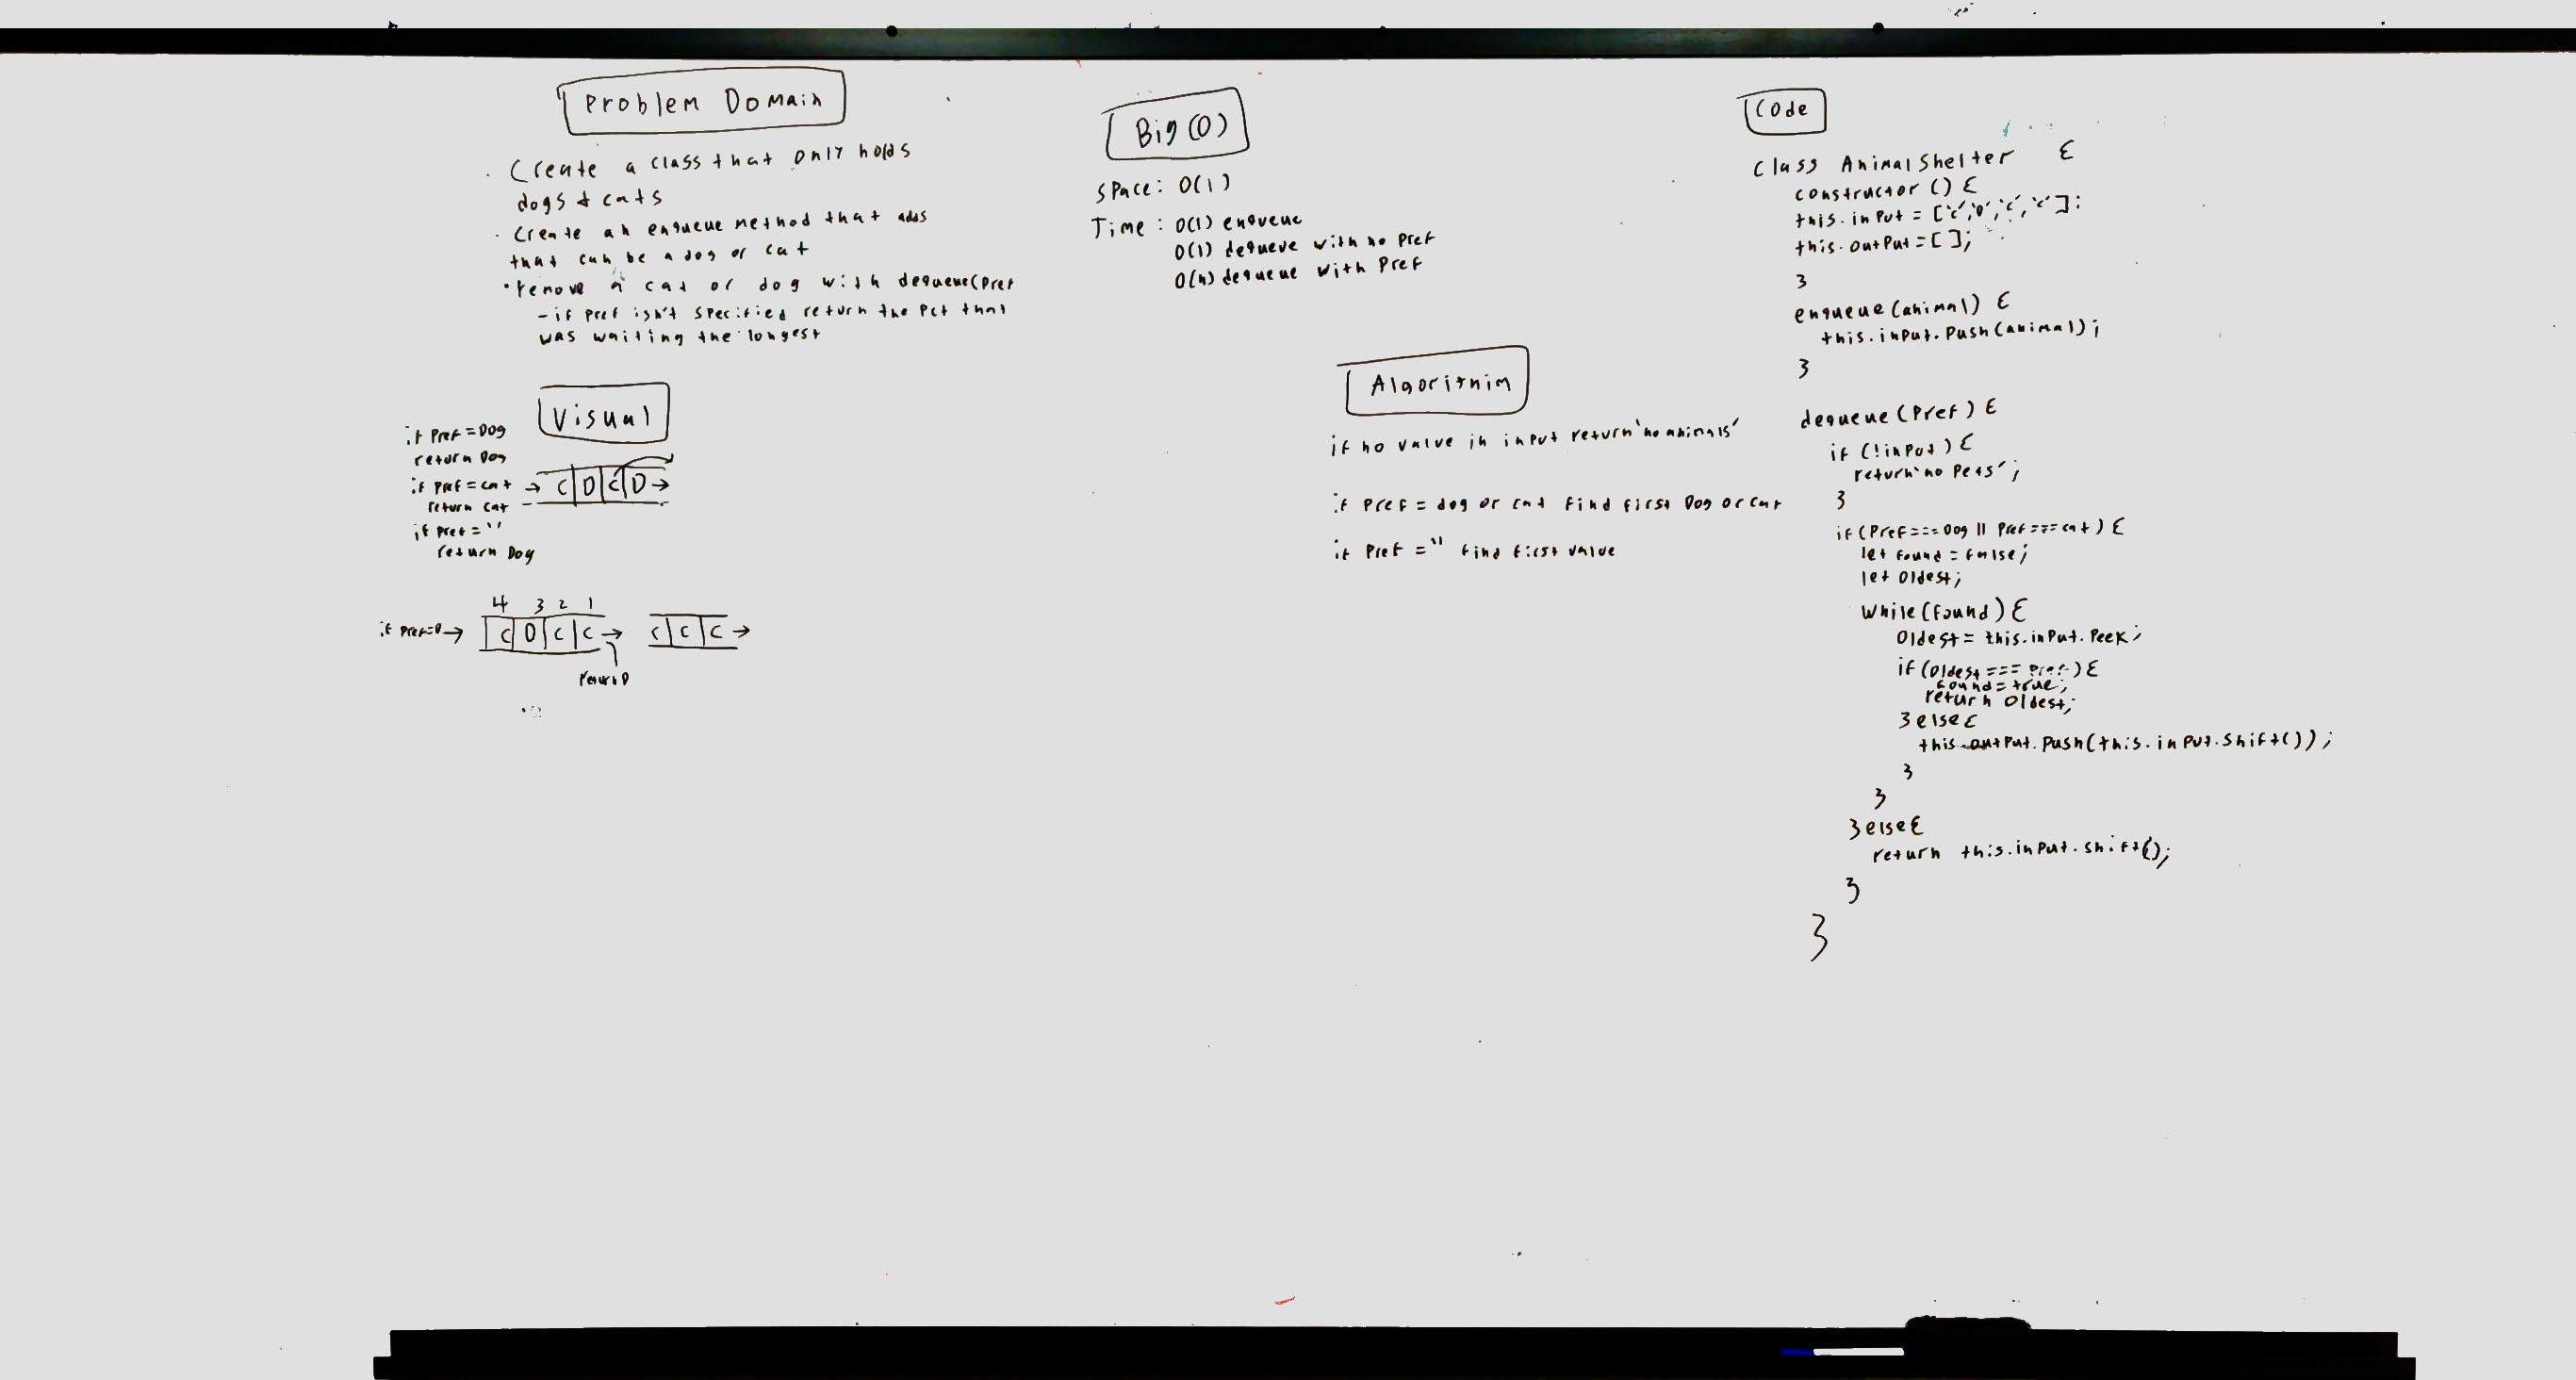 Problem Domain
· Create a class that only holds
dogs & cats
· Create an enqueue method that adds
that can be a dog or cat
· remove a cat or dog with dequeue(pref
- if pref isn't specified return the pet that
was waiting the longest
Visual
if pref = Dog
return Dog
if pref = cat
return cat
if pref = ''
return Dog
→ C | D | C | D →
4 3 2 1
if pref=D → | C | D | C | C → C | C | C →
return D
Big (O)
Space: O(1)
Time: O(1) enqueue
O(1) dequeue with no pref
O(n) dequeue with pref
Algorithim
if no value in input return 'no animals'
if pref = dog or cat find first Dog or cat
if pref = '' find first value
Code
class AnimalShelter {
constructor () {
this.input = ['c','D','c','c'];
this.output = [ ];
}
enqueue(animal) {
this.input.push(animal);
}
dequeue(pref) {
if (!input) {
return 'no pets';
}
if (pref === Dog || pref === cat) {
let found = false;
let oldest;
while(found) {
oldest = this.input.peek;
if (oldest === pref) {
found = true;
return oldest;
} else {
this.output.push(this.input.shift());
}
}
} else {
return this.input.shift();
}
}